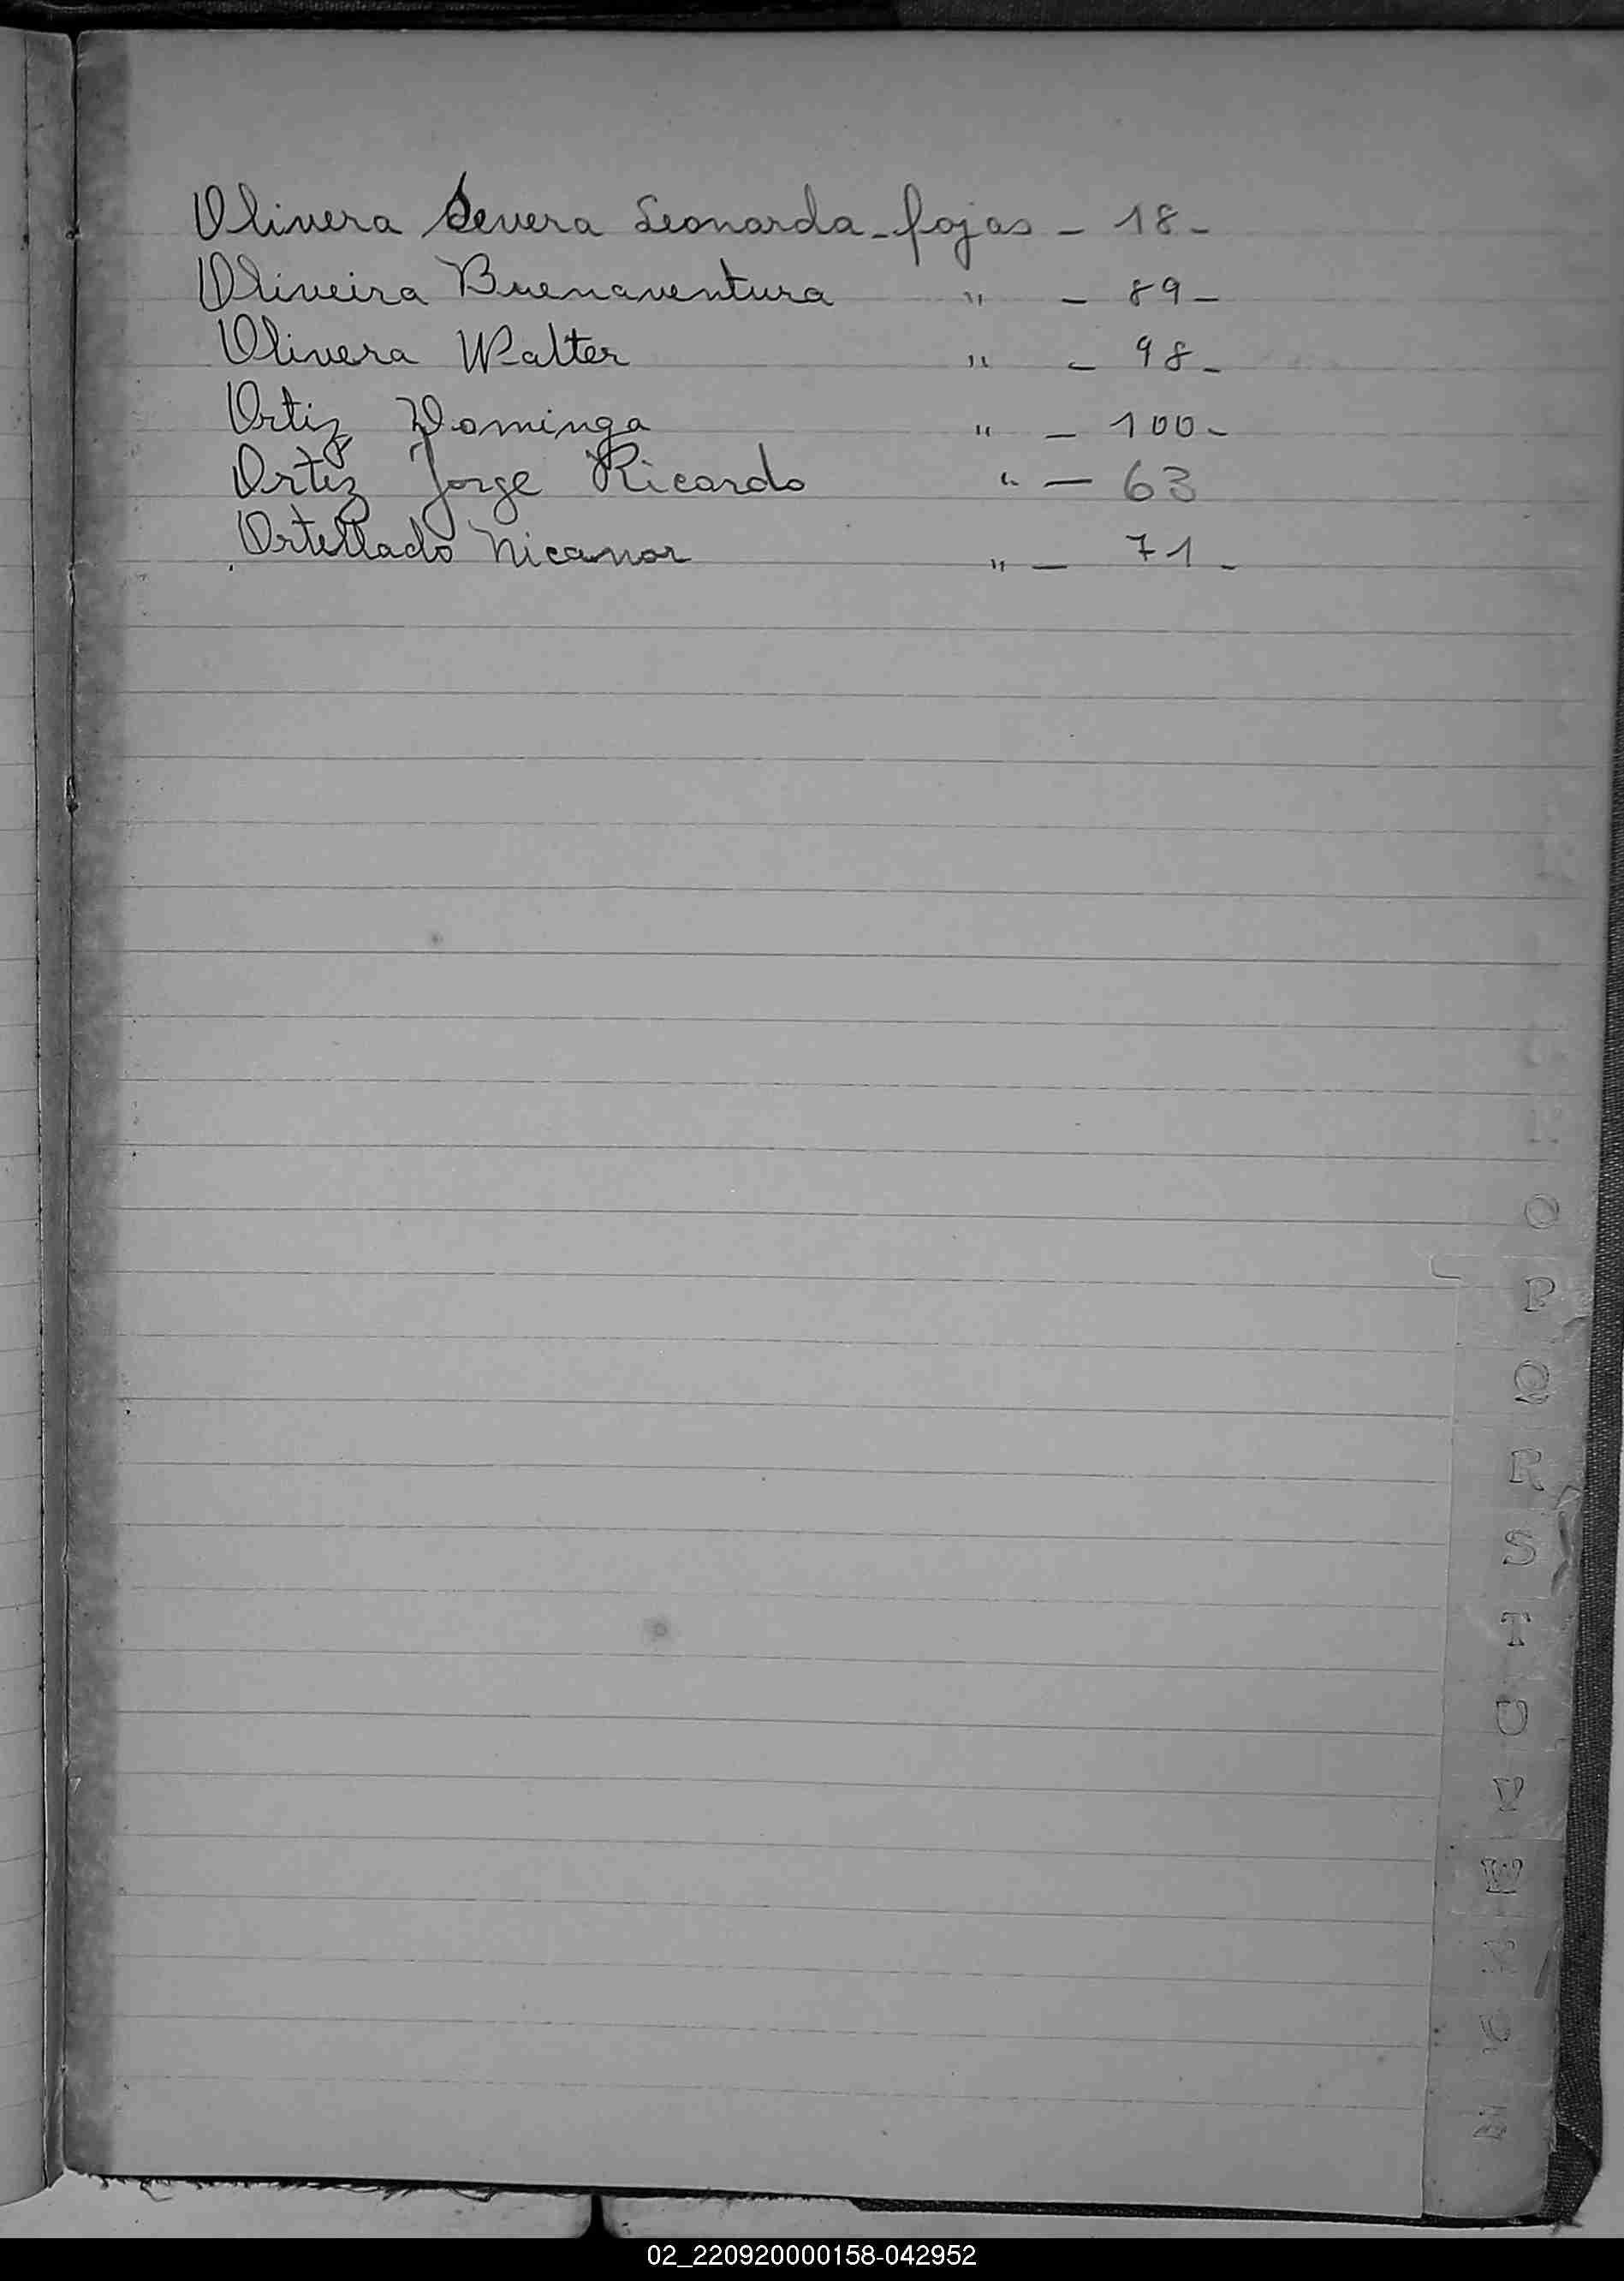 Olivera Severa Leonarda - fojas - 18 -
Oliveira Buenaventura " - 89 -
Olivera Walter " - 98 -
Ortiz Dominga " - 100 -
Ortiz Jorge Ricardo " - 63
Ortellado Nicanor " - 71 -
O
P
Q
R
S
T
U
V
W
02_220920000158-042952